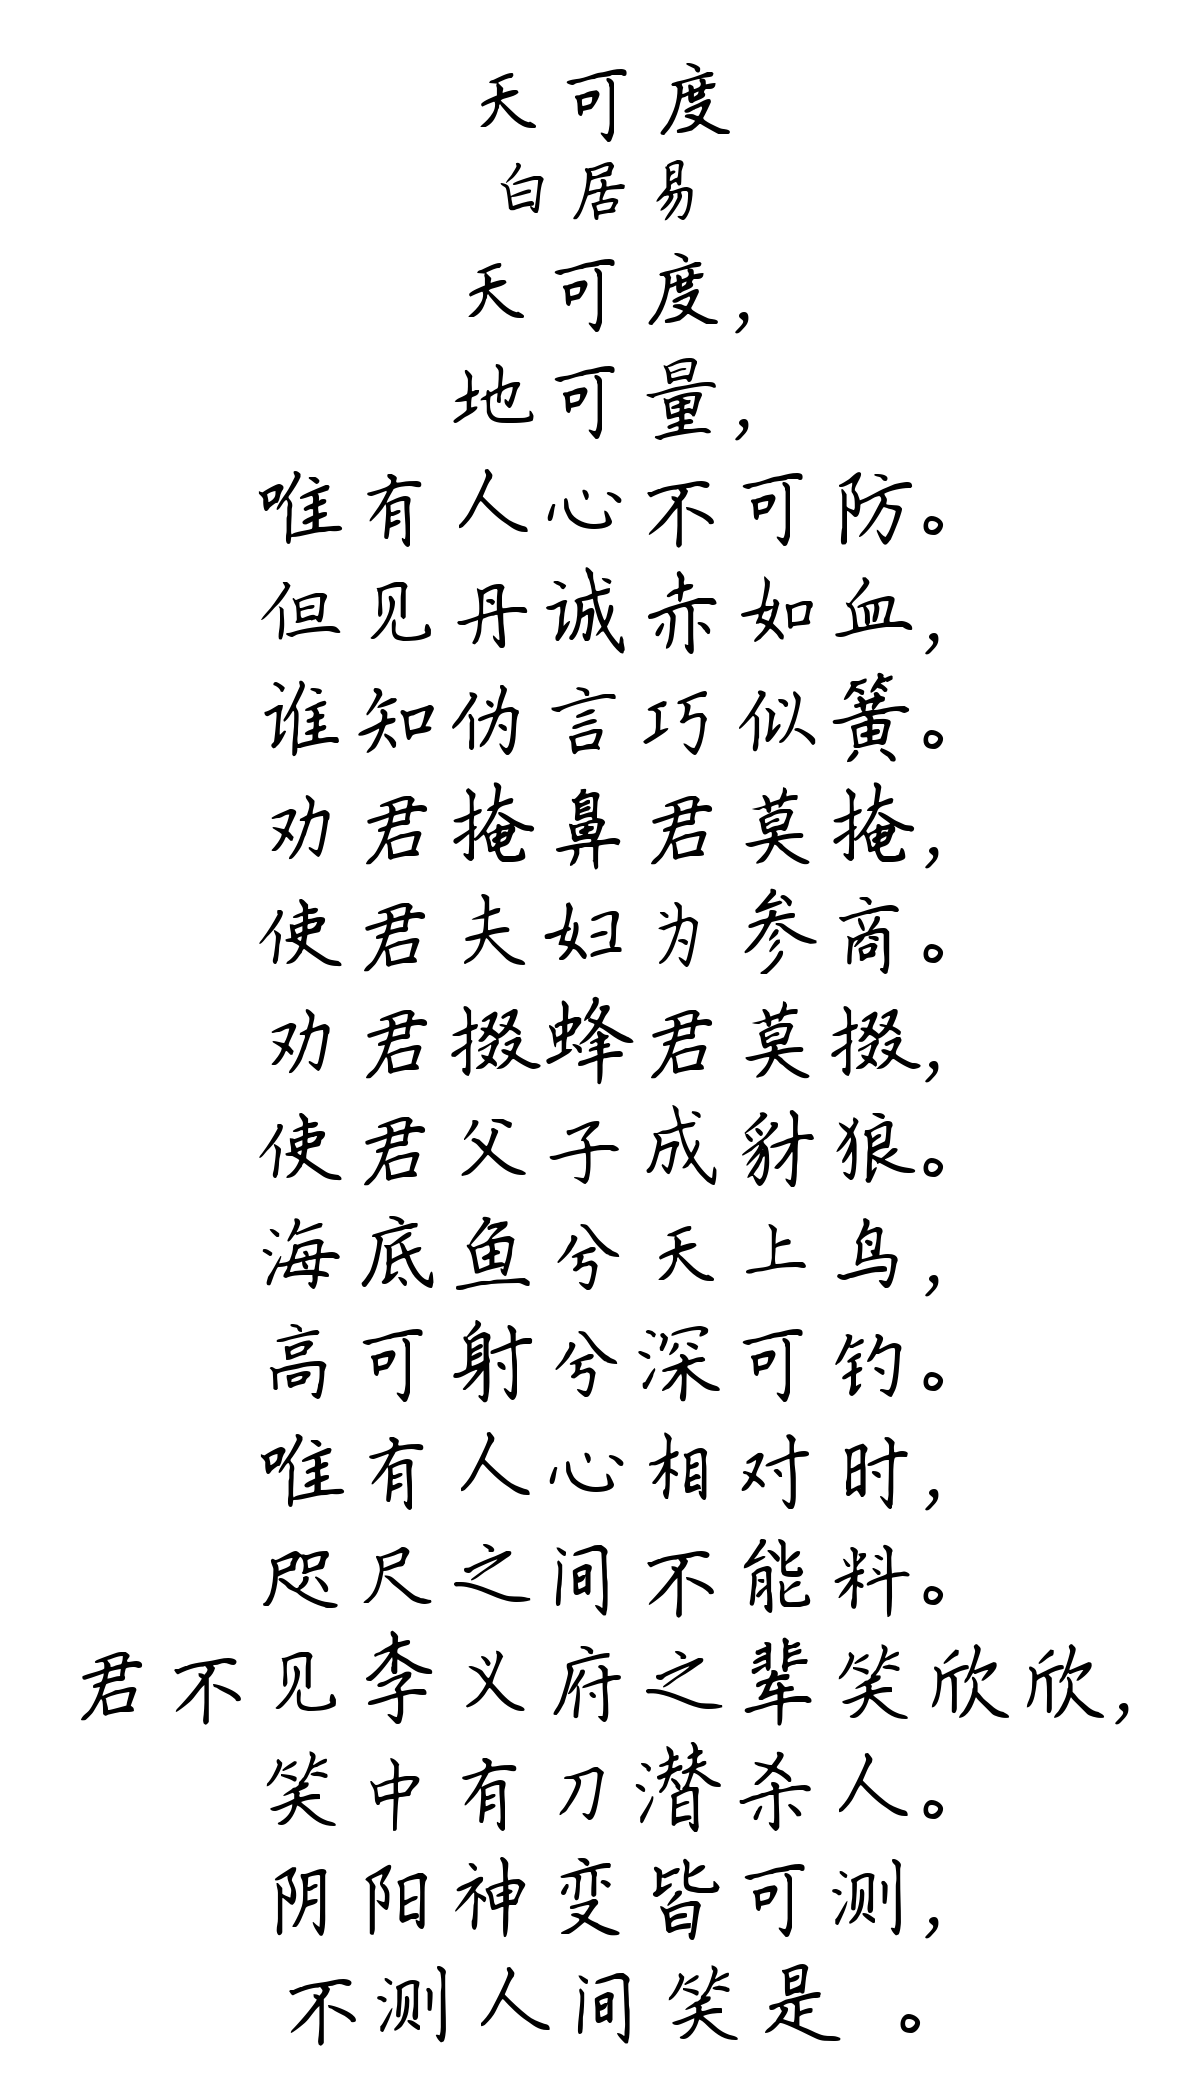 天可度
白居易
天可度，
地可量，
唯有人心不可防。
但见丹诚赤如血，
谁知伪言巧似簧。
劝君掩鼻君莫掩，
使君夫妇为参商。
劝君掇蜂君莫掇，
使君父子成豺狼。
海底鱼兮天上鸟，
高可射兮深可钓。
唯有人心相对时，
咫尺之间不能料。
君不见李义府之辈笑欣欣，
笑中有刀潜杀人。
阴阳神变皆可测，
不测人间笑是 。